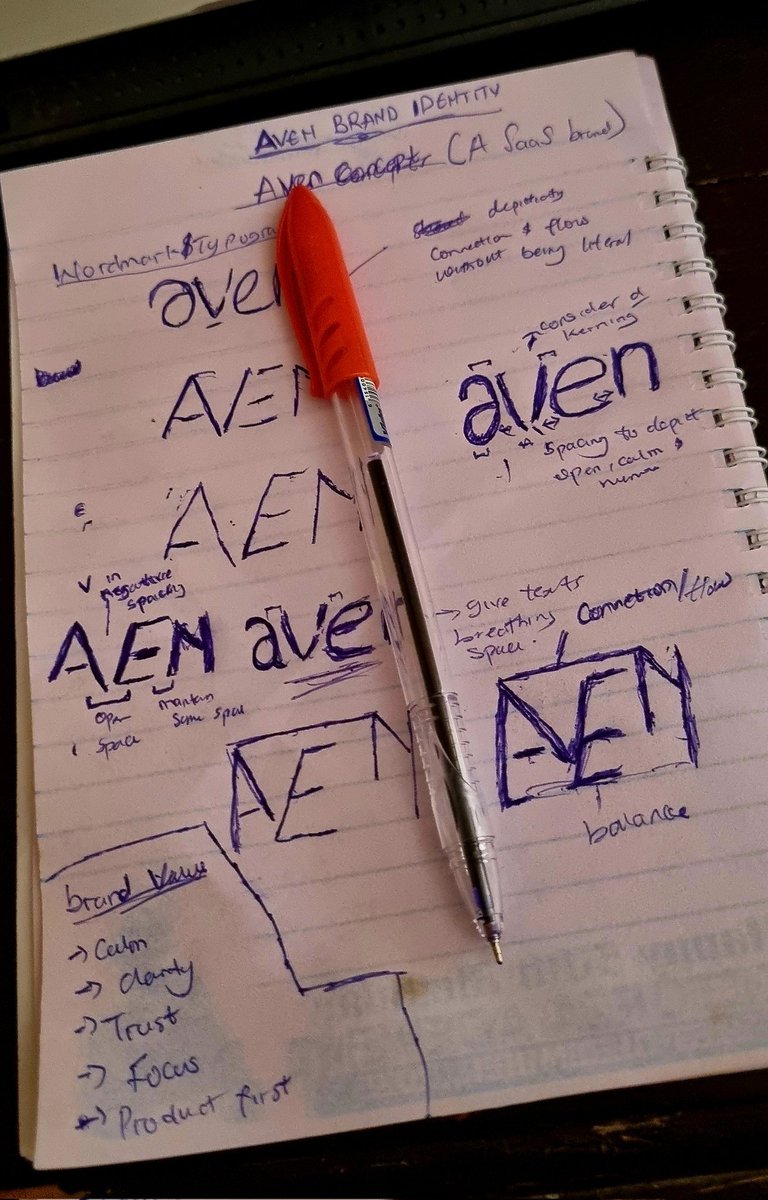 AVEN BRAND IDENTITY
Aven Concept (A SaaS brand)
Wordmark & Typogra
ave
depicting
connection & flow
without being literal
AVEN
consider
kerning
aven
Spacing to depict
open, calm &
human
AEN
V in
negative
spacing
AEN
open
space
maintain
same space
ave
→ give texts
breathing
space.
Connection/flow
AEN
AEN
balance
brand Value
→ Calm
→ clarity
→ Trust
→ Focus
→ Product first